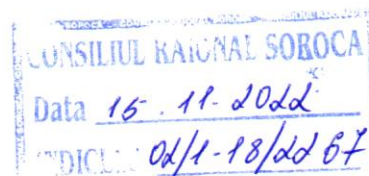 CONSILIUL RAIONAL SOROCA
Data 15.11.2022
INDICL 02/1-18/2267